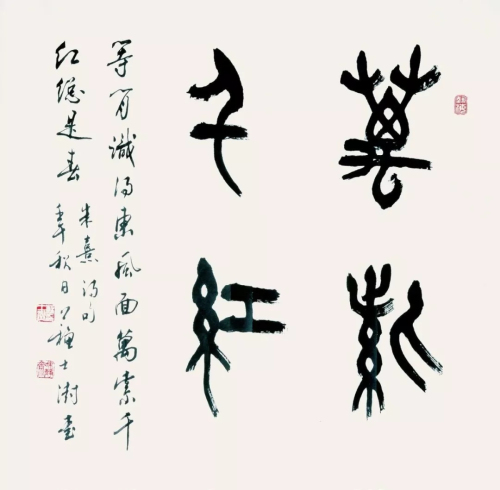 萬紫
千紅
等閒識得東風面萬紫千
紅總是春
朱熹詩句
壬午秋日士澍書